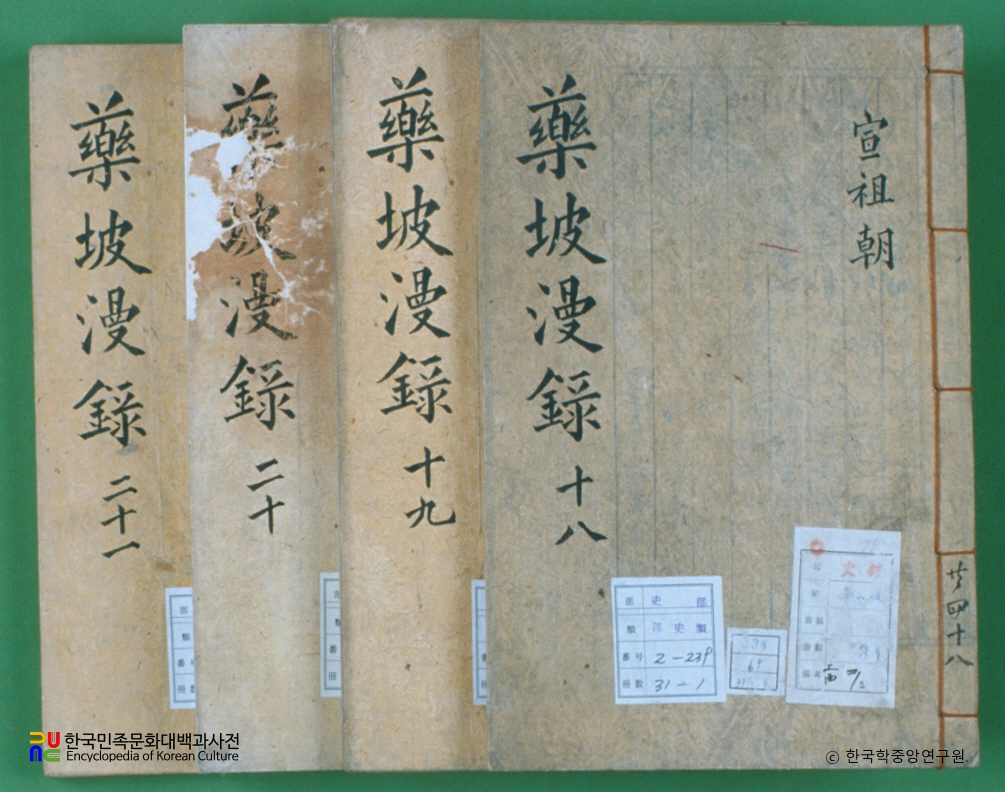 藥坡漫錄 二十一
藥坡漫錄 二十
藥坡漫錄 十九
藥坡漫錄 十八
宣祖朝
部
類
番号
冊数
部
類
番
冊
部 史 部
類 雜史類
番号 2-239
冊数 31-1
69
史部
31
한국민족문화대백과사전
Encyclopedia of Korean Culture
ⓒ 한국학중앙연구원.